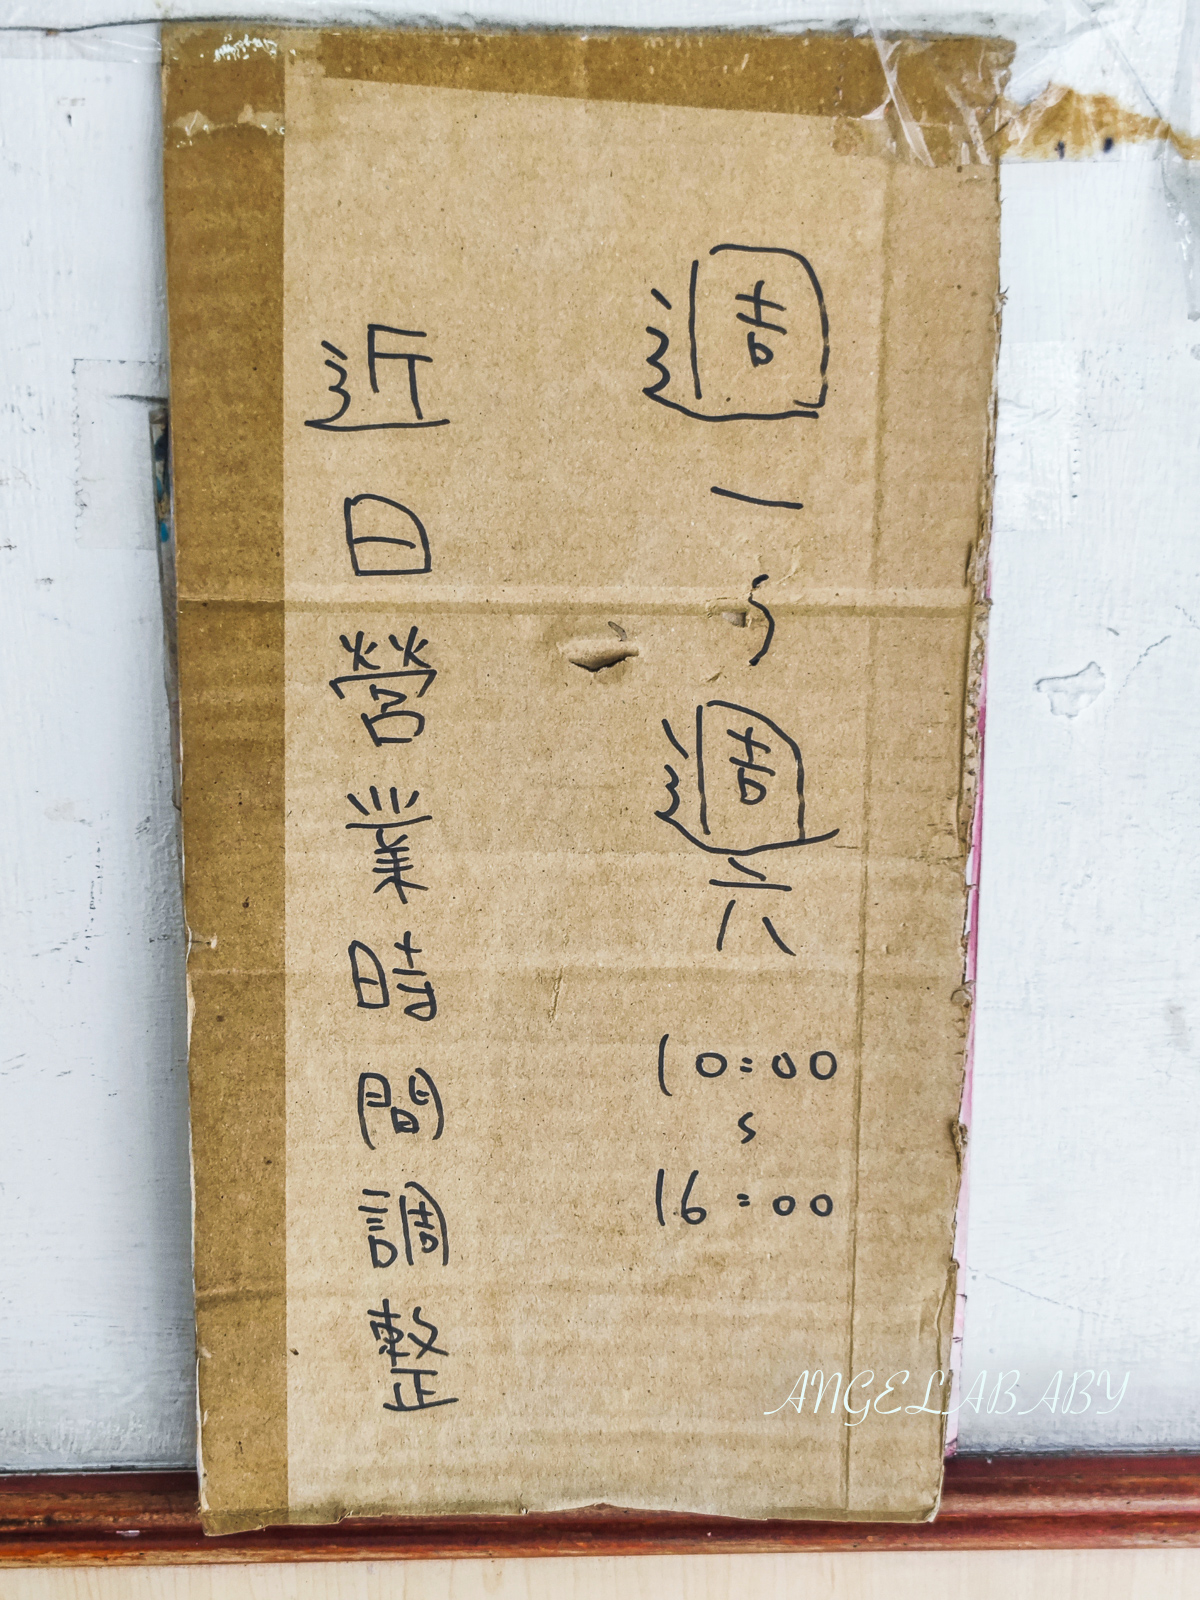 近日營業時間調整
週一~週六 10:00~16:00
ANGELABABY